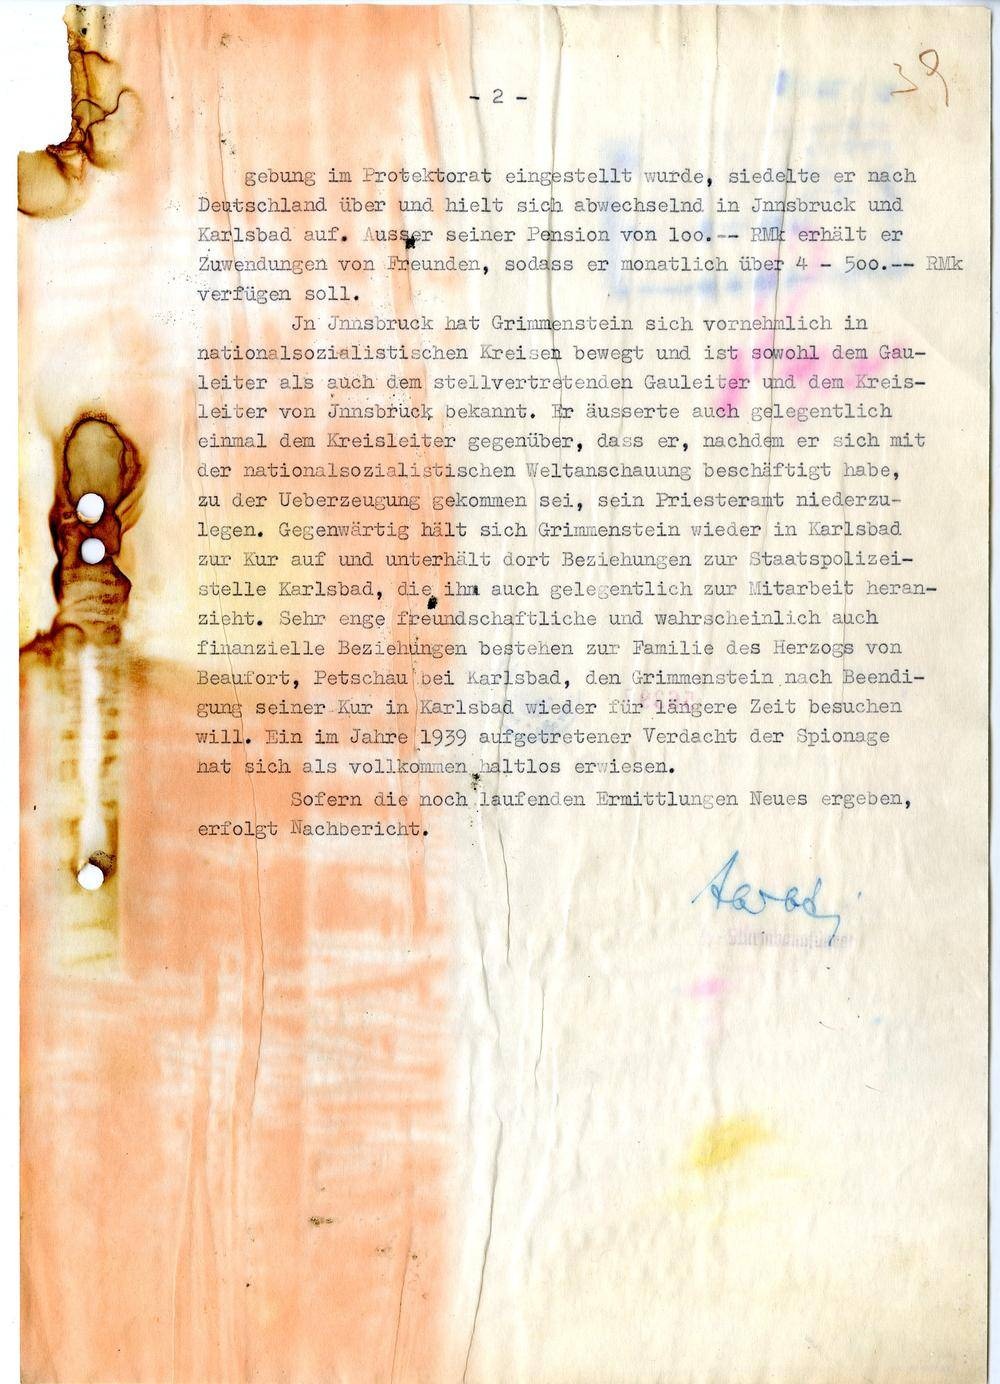 39
- 2 -
gebung im Protektorat eingestellt wurde, siedelte er nach
Deutschland über und hielt sich abwechselnd in Jnnsbruck und
Karlsbad auf. Ausser seiner Pension von 1oo.-- RMk erhält er
Zuwendungen von Freunden, sodass er monatlich über 4 - 5oo.-- RMk
verfügen soll.
Jn Jnnsbruck hat Grimmenstein sich vornehmlich in
nationalsozialistischen Kreisen bewegt und ist sowohl dem Gau-
leiter als auch dem stellvertretenden Gauleiter und dem Kreis-
leiter von Jnnsbruck bekannt. Er äusserte auch gelegentlich
einmal dem Kreisleiter gegenüber, dass er, nachdem er sich mit
der nationalsozialistischen Weltanschauung beschäftigt habe,
zu der Ueberzeugung gekommen sei, sein Priesteramt niederzu-
legen. Gegenwärtig hält sich Grimmenstein wieder in Karlsbad
zur Kur auf und unterhält dort Beziehungen zur Staatspolizei-
stelle Karlsbad, die ihn auch gelegentlich zur Mitarbeit heran-
zieht. Sehr enge freundschaftliche und wahrscheinlich auch
finanzielle Beziehungen bestehen zur Familie des Herzogs von
Beaufort, Petschau bei Karlsbad, den Grimmenstein nach Beendi-
gung seiner Kur in Karlsbad wieder für längere Zeit besuchen
will. Ein im Jahre 1939 aufgetretener Verdacht der Spionage
hat sich als vollkommen haltlos erwiesen.
Sofern die noch laufenden Ermittlungen Neues ergeben,
erfolgt Nachbericht.
-Sturmbannführer